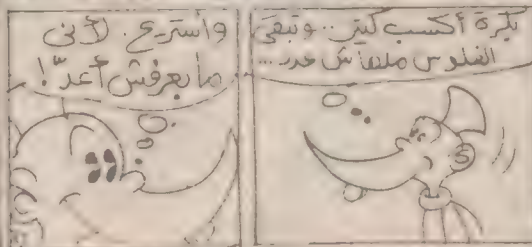 بكرة أكسب كتير.. وتبقى
الفلوس ملهاش عدد...
وأستريح. لأنى
مابعرفش أعدّ!